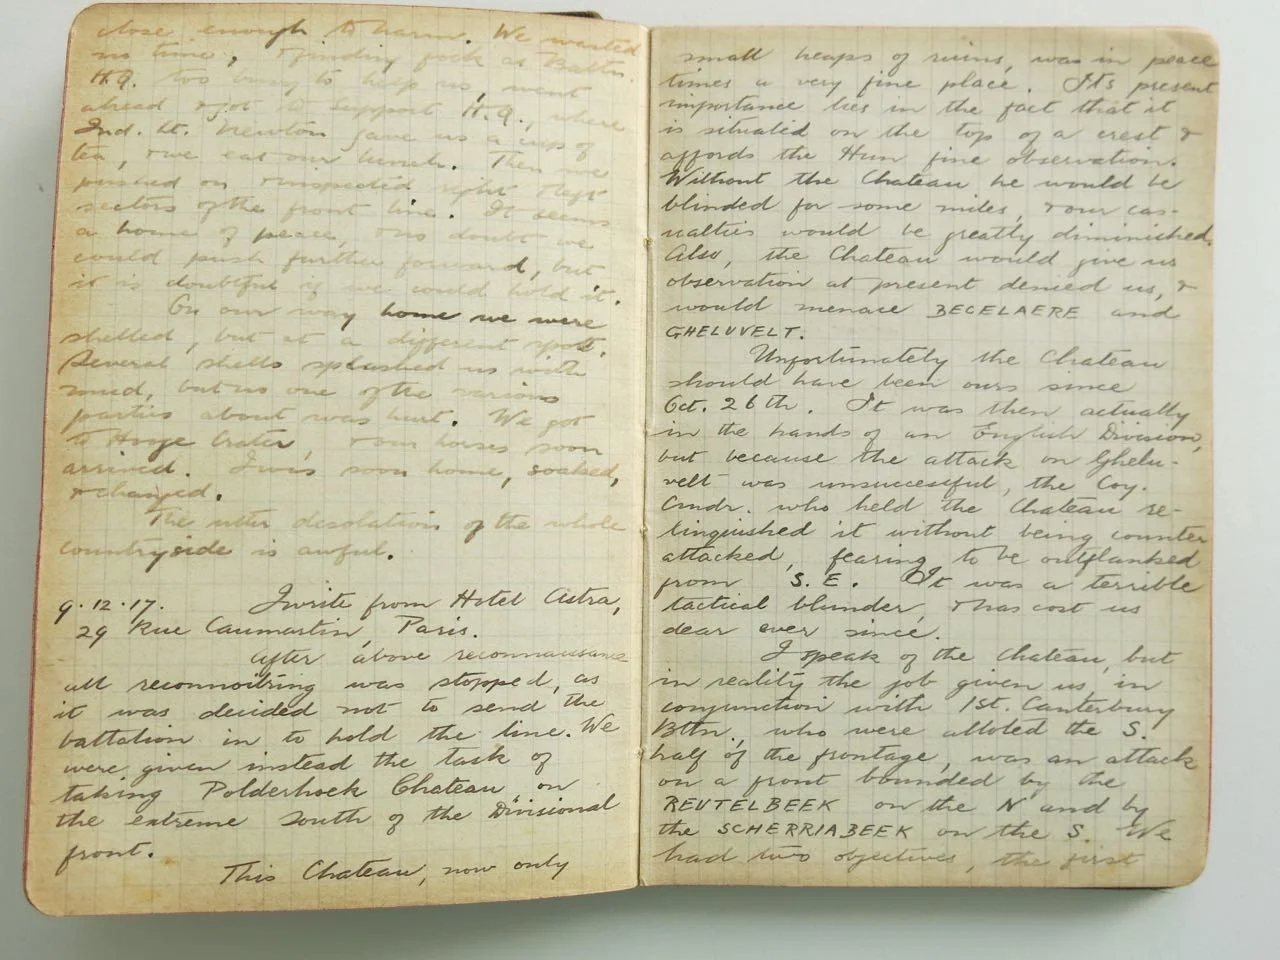 close enough to harm. We wasted
no time, & finding folk at Battn.
H.Q. too busy to help us, went
ahead & got to support H.Q., where
2nd. Lt. Newton gave us a cup of
tea, & we eat our lunch. Then we
pushed on & inspected right & left
sectors of the front line. It seems
a home of peace, & no doubt we
could push further forward, but
it is doubtful if we could hold it.
On our way home we were
shelled, but at a different spot.
Several shells splashed us with
mud, but no one of the various
parties about was hurt. We got
to Hooge Crater, & our horses soon
arrived. I was soon home, soaked,
& changed.
The utter desolation of the whole
countryside is awful.
9.12.17. I write from Hotel Astra,
29 Rue Caumartin, Paris.
After above reconnaissance
all reconnoitring was stopped, as
it was decided not to send the
battalion in to hold the line. We
were given instead the task of
taking Polderhoek Chateau on
the extreme South of the Divisional
front.
This Chateau, now only
small heaps of ruins, was in peace
times a very fine place. Its present
importance lies in the fact that it
is situated on the top of a crest &
affords the Hun fine observation.
Without the Chateau he would be
blinded for some miles, & our cas-
ualties would be greatly diminished.
Also, the Chateau would give us
observation at present denied us, &
would menace BECELAERE and
GHELUVELT.
Unfortunately the Chateau
should have been ours since
Oct. 26th. It was then actually
in the hands of an English Division,
but because the attack on Ghelu-
velt was unsuccessful, the Coy.
Cmdr. who held the Chateau re-
linguished it without being counter
attacked, fearing to be outflanked
from S.E. It was a terrible
tactical blunder, & has cost us
dear ever since.
I speak of the Chateau, but
in reality the job given us, in
conjunction with 1st. Canterbury
Bttn., who were alloted the S.
half of the frontage, was an attack
on a front bounded by the
REUTELBEEK on the N and by
the SCHERRIABEEK on the S. We
had two objectives, the first